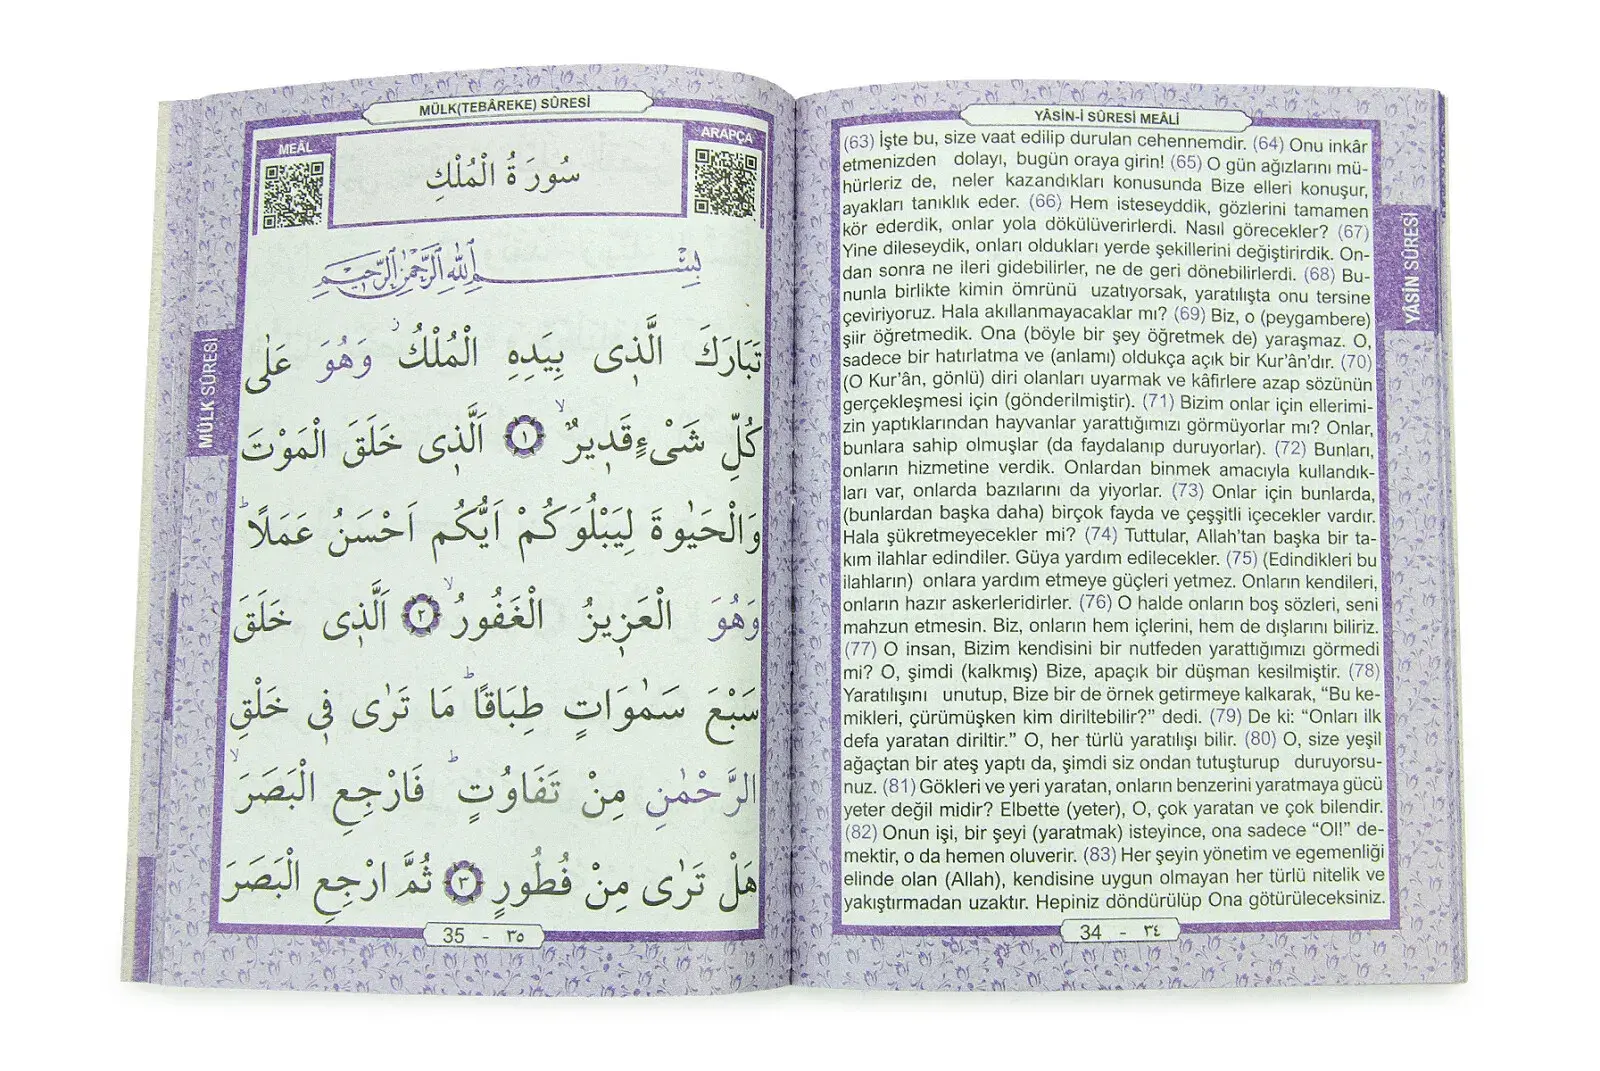 YÂSİN-İ SÛRESİ MEÂLİ
(63) İşte bu, size vaat edilip durulan cehennemdir. (64) Onu inkâr
etmenizden dolayı, bugün oraya girin! (65) O gün ağızlarını mü-
hürleriz de, neler kazandıkları konusunda Bize elleri konuşur,
ayakları tanıklık eder. (66) Hem isteseyddik, gözlerini tamamen
kör ederdik, onlar yola dökülüverirlerdi. Nasıl görecekler? (67)
Yine dileseydik, onları oldukları yerde şekillerini değiştirirdik. On-
dan sonra ne ileri gidebilirler, ne de geri dönebilirlerdi. (68) Bu-
nunla birlikte kimin ömrünü uzatıyorsak, yaratılışta onu tersine
çeviriyoruz. Hala akıllanmayacaklar mı? (69) Biz, o (peygambere)
şiir öğretmedik. Ona (böyle bir şey öğretmek de) yaraşmaz. O,
sadece bir hatırlatma ve (anlamı) oldukça açık bir Kur'ân'dır. (70)
(O Kur'ân, gönlü) diri olanları uyarmak ve kâfirlere azap sözünün
gerçekleşmesi için (gönderilmiştir). (71) Bizim onlar için ellerimi-
zin yaptıklarından hayvanlar yarattığımızı görmüyorlar mı? Onlar,
bunlara sahip olmuşlar (da faydalanıp duruyorlar). (72) Bunları,
onların hizmetine verdik. Onlardan binmek amacıyla kullandık-
ları var, onlarda bazılarını da yiyorlar. (73) Onlar için bunlarda,
(bunlardan başka daha) birçok fayda ve çeşşitli içecekler vardır.
Hala şükretmeyecekler mi? (74) Tuttular, Allah'tan başka bir ta-
kım ilahlar edindiler. Güya yardım edilecekler. (75) (Edindikleri bu
ilahların) onlara yardım etmeye güçleri yetmez. Onların kendileri,
onların hazır askerleridirler. (76) O halde onların boş sözleri, seni
mahzun etmesin. Biz, onların hem içlerini, hem de dışlarını biliriz.
(77) O insan, Bizim kendisini bir nutfeden yarattığımızı görmedi
mi? O, şimdi (kalkmış) Bize, apaçık bir düşman kesilmiştir. (78)
Yaratılışını unutup, Bize bir de örnek getirmeye kalkarak, “Bu ke-
mikleri, çürümüşken kim diriltebilir?” dedi. (79) De ki: “Onları ilk
defa yaratan diriltir.” O, her türlü yaratılışı bilir. (80) O, size yeşil
ağaçtan bir ateş yaptı da, şimdi siz ondan tutuşturup duruyorsu-
nuz. (81) Gökleri ve yeri yaratan, onların benzerini yaratmaya gücü
yeter değil midir? Elbette (yeter), O, çok yaratan ve çok bilendir.
(82) Onun işi, bir şeyi (yaratmak) isteyince, ona sadece “Ol!” de-
mektir, o da hemen oluverir. (83) Her şeyin yönetim ve egemenliği
elinde olan (Allah), kendisine uygun olmayan her türlü nitelik ve
yakıştırmadan uzaktır. Hepiniz döndürülüp Ona götürüleceksiniz.
34 - ٣٤
YÂSİN SÛRESİ
MÜLK(TEBÂREKE) SÛRESİ
MEÂL
ARAPÇA
سُورَةُ الْمُلْكِ
بِسْمِ اللهِ الرَّحْمٰنِ الرَّحِيمِ
تَبَارَكَ الَّذ۪ى بِيَدِهِ الْمُلْكُۘ وَهُوَ عَلٰى
كُلِّ شَىْءٍ قَد۪يرٌۙ ﴿١﴾ اَلَّذ۪ى خَلَقَ الْمَوْتَ
وَالْحَيٰوةَ لِيَبْلُوَكُمْ اَيُّكُمْ اَحْسَنُ عَمَلًاۜ
وَهُوَ الْعَز۪يزُ الْغَفُورُۙ ﴿٢﴾ اَلَّذ۪ى خَلَقَ
سَبْعَ سَمٰوَاتٍ طِبَاقًاۜ مَا تَرٰى ف۪ى خَلْقِ
الرَّحْمٰنِ مِنْ تَفَاوُتٍۜ فَارْجِعِ الْبَصَرَۙ
هَلْ تَرٰى مِنْ فُطُورٍ ﴿٣﴾ ثُمَّ ارْجِعِ الْبَصَرَ
35 - ٣٥
MÜLK SÛRESİ